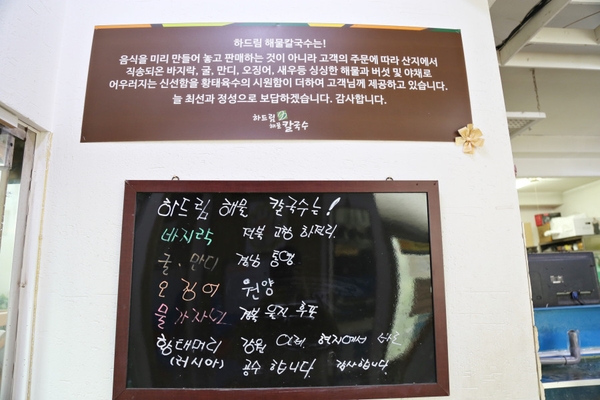 하드림 해물칼국수는!
음식을 미리 만들어 놓고 판매하는 것이 아니라 고객의 주문에 따라 산지에서
직송되온 바지락, 굴, 만디, 오징어, 새우등 싱싱한 해물과 버섯 및 야채로
어우러지는 신선함을 황태육수의 시원함이 더하여 고객님께 제공하고 있습니다.
늘 최선과 정성으로 보답하겠습니다. 감사합니다.
하드림 해물 칼국수
하드림 해물 칼국수는!
바지락 전북 고창 하전리.
굴. 만디 경남 통영
오징어 원양
물가자미 경북 울진 후포
황태머리 강원 현지에서
(러시아) 공수 합니다. 감사합니다.